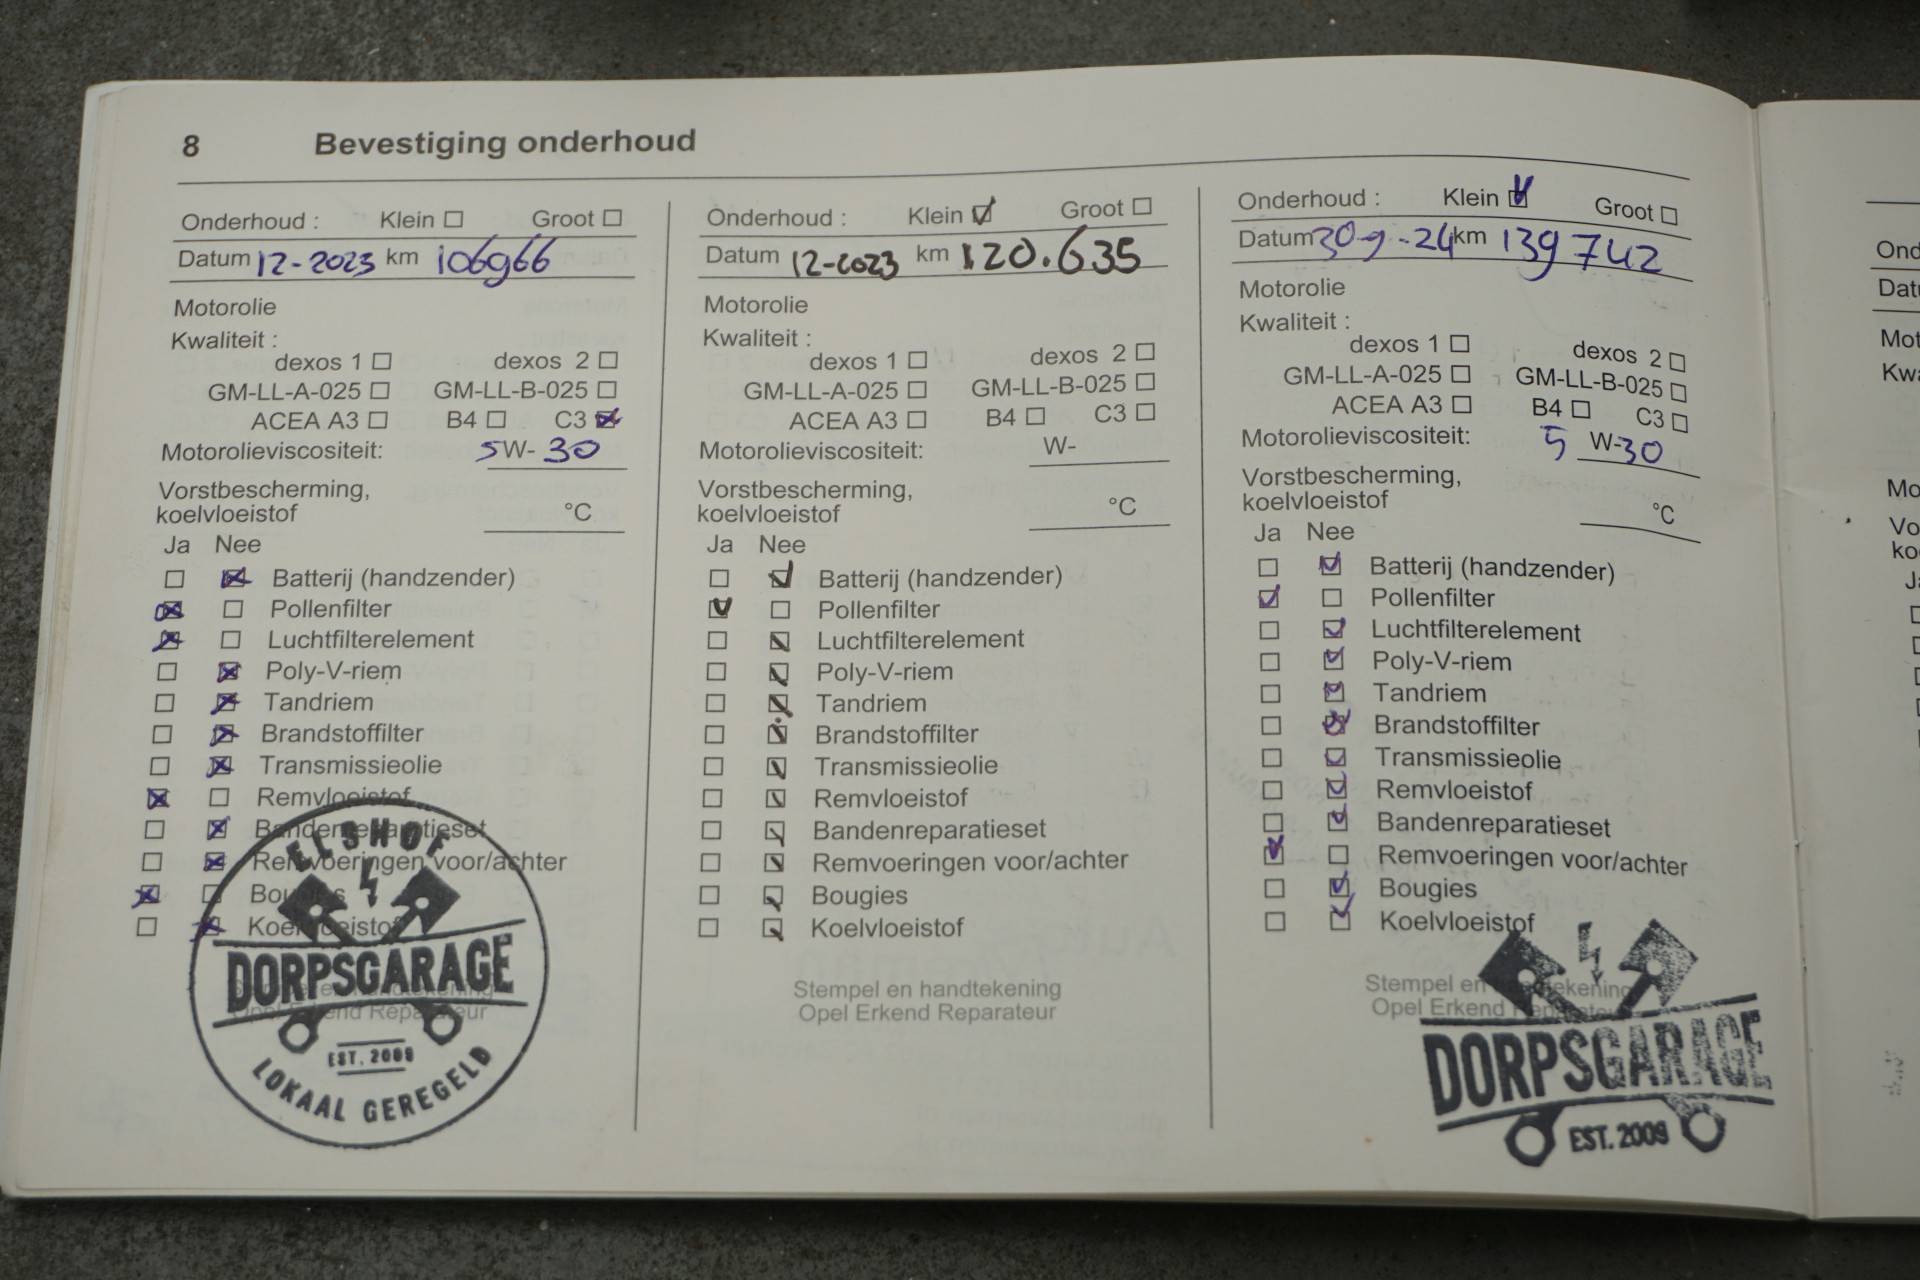 8 Bevestiging onderhoud
Onderhoud : Klein Groot
Datum 12-2023 km 106966
Motorolie
Kwaliteit :
dexos 1 dexos 2
GM-LL-A-025 GM-LL-B-025
ACEA A3 B4 C3
Motorolieviscositeit: 5W-30
Vorstbescherming,
koelvloeistof °C
Ja Nee
Batterij (handzender)
Pollenfilter
Luchtfilterelement
Poly-V-riem
Tandriem
Brandstoffilter
Transmissieolie
Remvloeistof
Bandenreparatieset
Remvoeringen voor/achter
Bougies
Koelvloeistof
Stempel en handtekening
Opel Erkend Reparateur
ELSHOF
DORPSGARAGE
EST. 2009
LOKAAL GEREGELD
Onderhoud : Klein Groot
Datum 12-2023 km 120.635
Motorolie
Kwaliteit :
dexos 1 dexos 2
GM-LL-A-025 GM-LL-B-025
ACEA A3 B4 C3
Motorolieviscositeit: W-
Vorstbescherming,
koelvloeistof °C
Ja Nee
Batterij (handzender)
Pollenfilter
Luchtfilterelement
Poly-V-riem
Tandriem
Brandstoffilter
Transmissieolie
Remvloeistof
Bandenreparatieset
Remvoeringen voor/achter
Bougies
Koelvloeistof
Stempel en handtekening
Opel Erkend Reparateur
Onderhoud : Klein Groot
Datum 30-9-24 km 139742
Motorolie
Kwaliteit :
dexos 1 dexos 2
GM-LL-A-025 GM-LL-B-025
ACEA A3 B4 C3
Motorolieviscositeit: 5 W-30
Vorstbescherming,
koelvloeistof °C
Ja Nee
Batterij (handzender)
Pollenfilter
Luchtfilterelement
Poly-V-riem
Tandriem
Brandstoffilter
Transmissieolie
Remvloeistof
Bandenreparatieset
Remvoeringen voor/achter
Bougies
Koelvloeistof
Stempel en handtekening
Opel Erkend Reparateur
DORPSGARAGE
EST. 2009